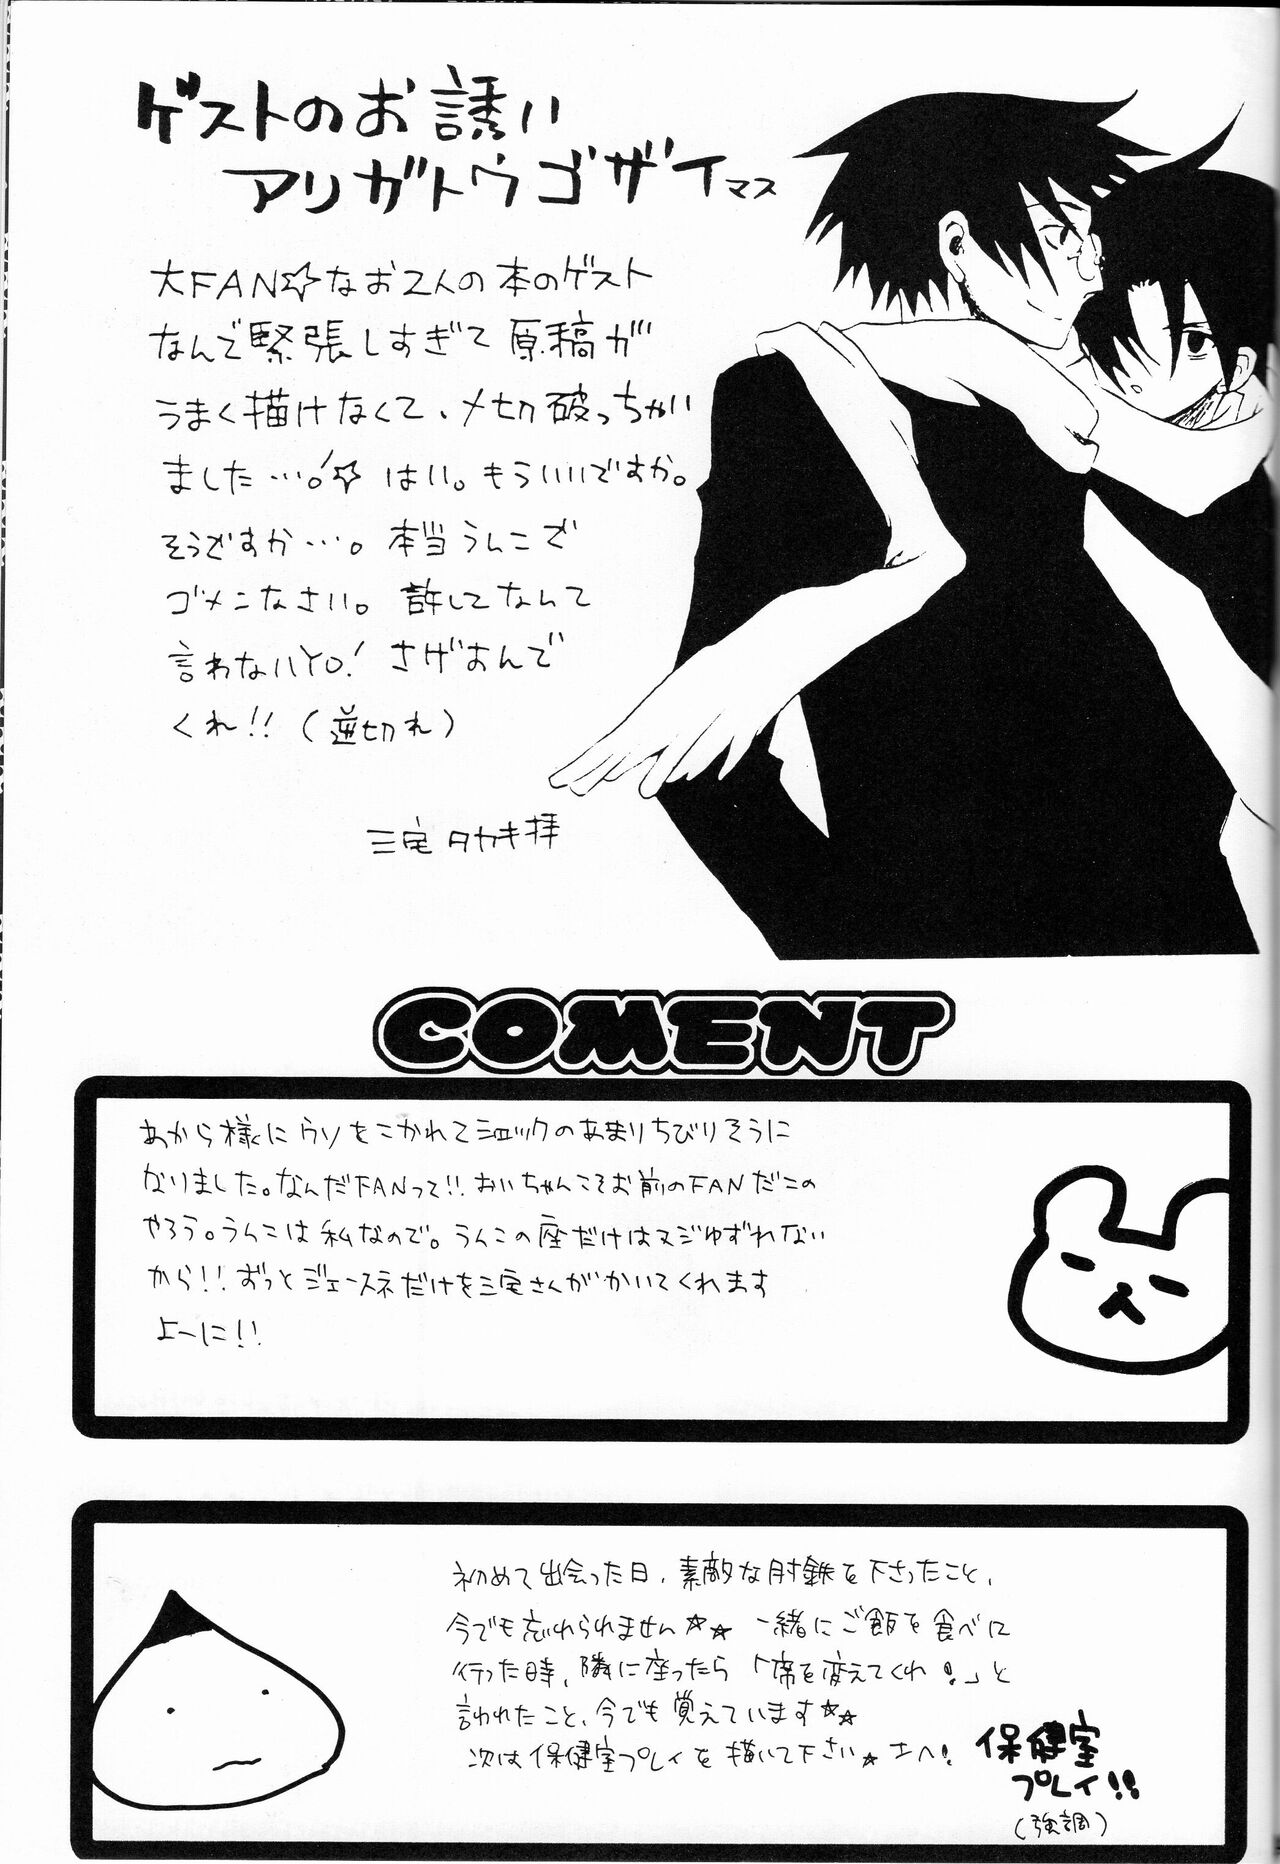 ゲストのお誘い
アリガトウゴザイマス
大FAN☆なお2人の本のゲスト
なんで緊張しすぎて原稿が
うまく描けなくて、〆切破っちゃい
ました…。!☆ はい。もういいですか。
そうですか…。本当うんこで
ゴメンなさい。許してなんて
言わないYO! さげすんで
くれ!!(逆切れ)
三宅タカキ拝
COMENT
あから様にウソをこかれてショックのあまりちびりそうに
なりました。なんだFANって!!おいちゃんこそお前のFANだこの
やろう。うんこは私なので。うんこの座だけはマジゆずれない
から!!ずっとジェースネだけを三宅さんがかいてくれます
よーに!!
初めて出会った日、素敵な肘鉄を下さったこと、
今でも忘れられません☆☆ 一緒にご飯を食べに
行った時、隣に座ったら「席を変えてくれ!」と
言われたこと、今でも覚えています☆☆
次は保健室プレイを描いて下さい☆
保健室
プレイ!!
(強調)